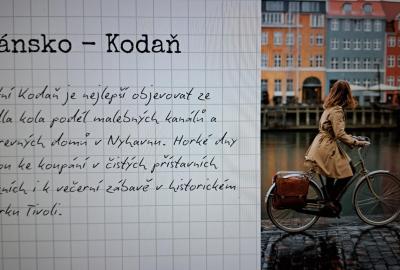 ánsko – Kodaň
tní Kodaň je nejlepší objevovat ze
dla kola podél malebných kanálů a
revných domů v Nyhavnu. Horké dny
ou ke koupání v čistých přístavních
ních i k večerní zábavě v historickém
rku Tivoli.